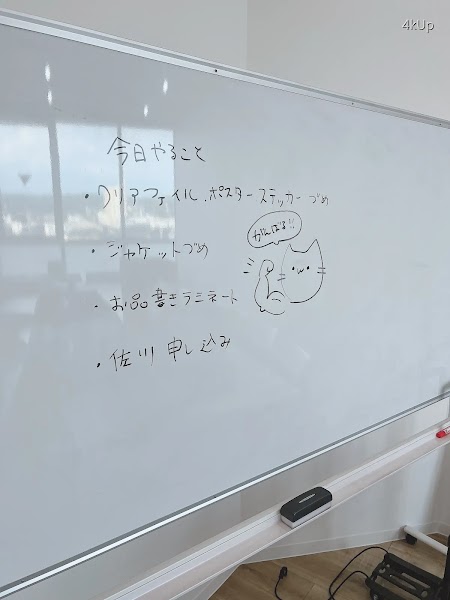 4kUp
今日やること
・クリアファイル、ポスターステッカーづめ
・ジャケットづめ
がんばる!!
・お品書きラミネート
・佐川 申し込み